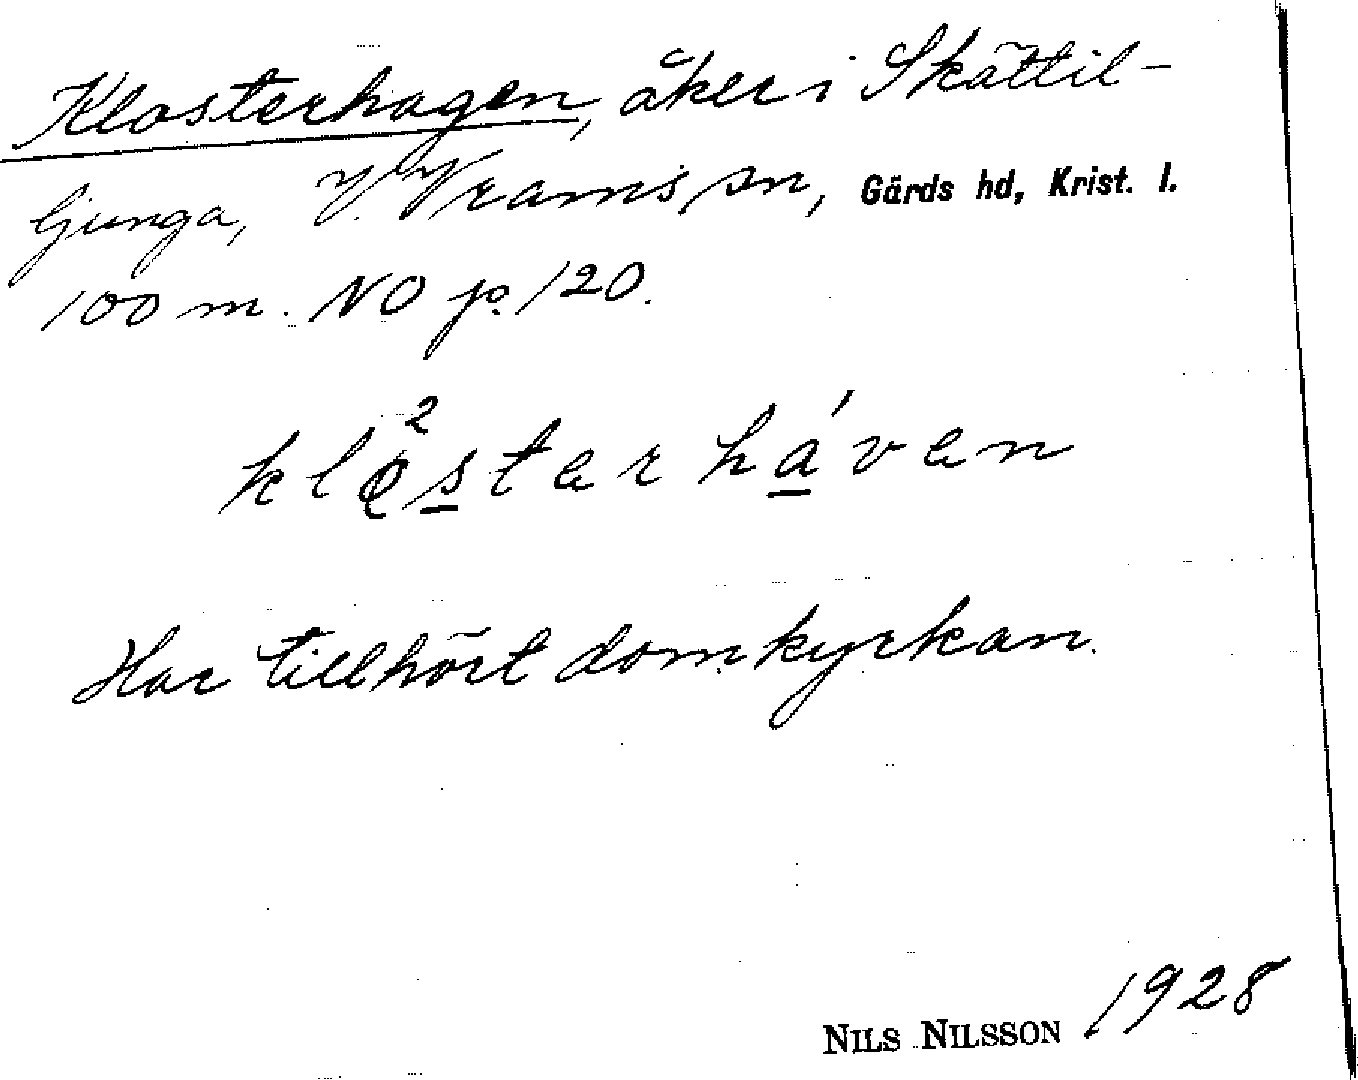 Klosterhagen, åker i Skättil-
ljunga, V. Vrams sn, Gärds hd, Krist. l.
100 m. NO p. 120.
klo̢²s̲tar há̲van
Har tillhört domkyrkan.
NILS NILSSON 1928